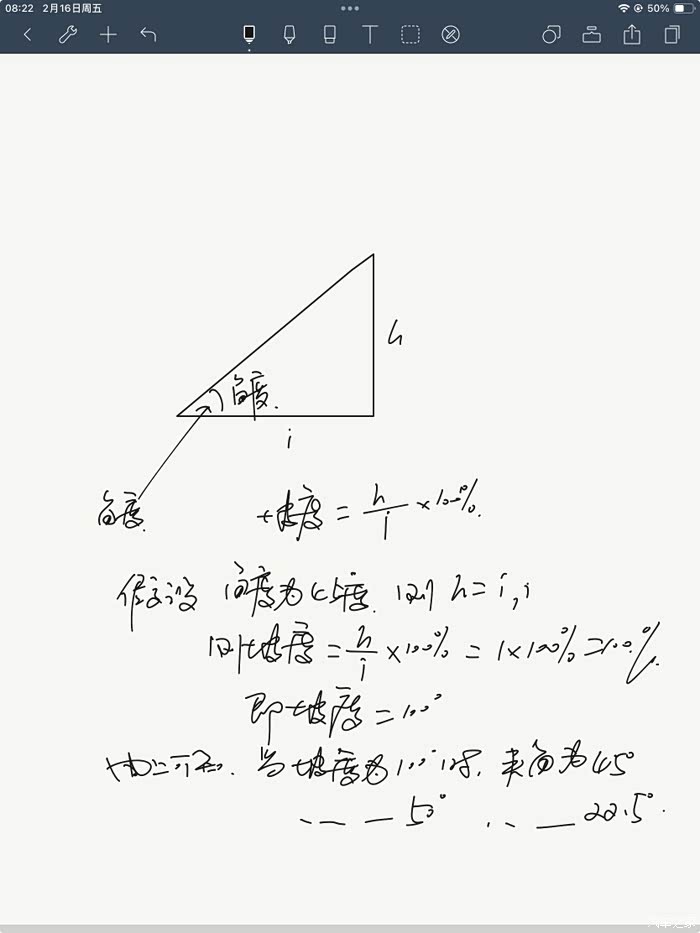 08:22 2月16日周五 50%
h
角度.
i
角度.
坡度 = h/i ×100%.
假设 角度为45度. 则 h = i,
则坡度 = h/i ×100% = 1×100% = 100%.
即坡度 = 100°
由此可知. 当坡度为100°时. 夹角为45°
50° 22.5°.
汽车之家